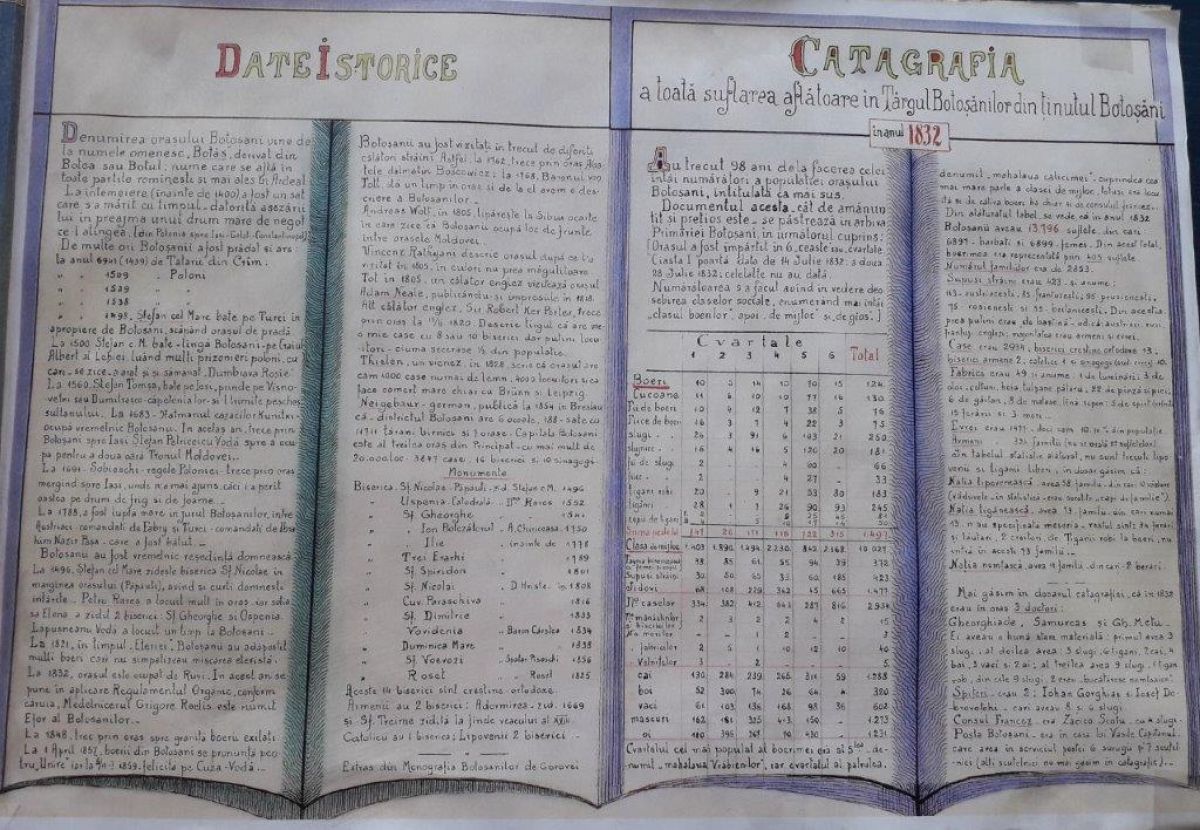 DATE ISTORICE
Denumirea orașului Botoșani vine de
la numele omenesc „Botăș” derivat din
Botea sau Botul: nume care se află în
toate părțile rominești și mai ales în Ardeal
La întemeiere (înainte de 1400) a fost un sat
care s'a mărit cu timpul - datorită așezării
lui în preajma unui drum mare de negoț
ce-l atingea. (din Polonia spre Iași-Galați-Constantinopol)
De multe ori Botoșanii a fost prădat și ars:
la anul 6947 (1439) de Tătarii din Crim;
„ „ 1509 „ Poloni
„ „ 1529 „
„ „ 1538 „
„ „ 1498, Ștefan cel Mare bate pe Turci în
apropiere de Botoșani, scăpînd orașul de pradă.
La 1500 Ștefan c. M. bate - lîngă Botoșani - pe Craiu
Albert al Lehiei, luând mulți prizonieri poloni, cu
cari - se zice - a arat și și sămănat „Dumbrava Roșie”
La 1560, Ștefan Tomșa, bate pe Iași, prinde pe Visno-
vețki sau Dumitrașco - căpetenia lor - și-l trimite peșcheș
sultanului. La 1683 - Hatmanul cazacilor Kunițki -
ocupă vremelnic Botoșanii. În acelaș an, trece prin
Botoșani spre Iași Ștefan Petriceicu Vodă spre a ocu-
pa pentru a doua oară Tronul Moldovei.
La 1691 - Sobieschi - regele Poloniei - trece prin oraș
mergînd spre Iași, unde n'a mai ajuns, căci i-a perit
oastea pe drum de frig și de foame.
La 1788, a fost lupta mare în jurul Botoșanilor, între
Austriaci - comandați de Fabry și Turci - comandați de Ibra-
him Nazir Pașa - care a fost bătut.
Botoșanii au fost vremelnic reședință domnească.
La 1496, Ștefan cel Mare zidește biserica Sf. Nicolae în
marginea orașului (Păpăuți), avînd și curți domnești
întărite. Petru Rareș a locuit mult în oraș iar soția
sa Elena a zidit 2 biserici: Sf. Gheorghe și Ospenia.
Lăpușneanu Vodă a locuit un timp la Botoșani.
La 1821, în timpul „Eteriei”, Botoșanii au adăpostit
mulți boeri cari nu simpatizau mișcarea eteristă.
La 1832, orașul este ocupat de Ruși. În acest an se
pune în aplicare Regulamentul Organic, conform
căruia, Medelnicerul Grigore Roclis este numit
Efor al Botoșanilor.
La 1848, trec prin oraș spre graniță boerii exilați
La 1 April 1857, boerii din Botoșani se pronunță pen-
tru „Unire” iar la 1859, felicită pe Cuza-Vodă.
Botoșanii au fost vizitați în trecut de diferiți
călători străini. Astfel, la 1762, trece prin oraș Aba-
tele dalmatin Boscowicz; la 1768, Baronul von
Tott, dă un timp în oraș și de la el avem o des-
criere a Botoșanilor.
Andreas Wolf, în 1805, tipărește la Sibiu o carte
în care zice că Botoșanii ocupă loc de frunte
între orașele Moldovei.
Vincenz Batthyani descrie orașul după ce l'a
vizitat în 1805, în culori nu prea măgulitoare
Tot în 1805, un călător englez vizitează orașul
Adam Neale, publicându-și impresiile în 1818.
Alt călător englez, Sir Robert Ker Porter, trece
prin oraș la 1820. Descrie tîrgul că are vre-
o mie case cu 8 sau 10 biserici dar puțini locu-
itori - ciuma secerase ½ din populație.
Thielen, un vienez, în 1828, scrie că orașul are
cam 1000 case numai de lemn, 4000 locuitori și că
face comerț mare chiar cu Brünn și Leipzig.
Neigebaur - german, publică la 1854 în Breslau
că - districtul Botoșani are 6 ocoale, 188 - sate cu
țărani, birnici și 1 oraș - Capitala Botoșani
este al treilea oraș din Principat - cu mai mult de
20.000 loc. 3847 case. 16 biserici și 10 sinagogi
Monumente
Biserica Sf. Nicolae - Păpăuți - zid. Ștefan c.M. 1496
„ Uspenia Catedrală „ P. Rareș 1552
„ Sf. Gheorghe „ 1551
„ Ion Botezătorul „ A. Chiriceasa 1750
„ Ilie „ înainte de 1778
„ Trei Erarhi 1789
„ Sf. Spiridon 1801
„ Sf. Nicolai „ D. Hriste. în 1808
„ Cuv. Paraschiva 1816
„ Sf. Dimitrie 1833
„ Vovidenia „ Baron Cârstea 1834
„ Duminica Mare 1838
„ Sf. Voevozi „ Spătar Pisoschi 1856
„ Roset „ Roset 1825
Aceste 14 biserici sînt creștine ortodoxe.
Armenii au 2 biserici: Adormirea - zid. 1669
și Sf. Treime zidită la finele veacului al XVIII.
Catolicii au 1 biserică; Lipovenii 2 biserici.
Extras din Monografia Botoșanilor de Gorovei
CATAGRAFIA
a toată suflarea aflătoare în Târgul Botoșănilor din ținutul Botoșăni
în anul 1832
Au trecut 98 ani de la facerea celei
întâi numărători a populației orașului
Botoșani, intitulată ca mai sus.
Documentul acesta - cât de amănun-
țit și prețios este - se păstrează în arhiva
Primăriei Botoșani, în următorul cuprins:
[Orașul a fost împărțit în 6 „ceaste” sau „cvartale”
Ciasta I poartă data de 14 Julie 1832, a doua
28 Julie 1832; celelalte nu au dată.
Numărătoarea s'a făcut avînd în vedere deo-
sebirea claselor sociale, enumerând mai întăi
„clasul boerilor”, apoi „de mijloc” și „de gios”.]
Cvartale
1 2 3 4 5 6 Total
Boeri 60 3 14 10 70 15 124
Cucoane 11 6 10 10 77 16 130
Fii de boeri 10 4 12 7 38 5 76
Fiice de boeri 16 3 7 4 22 3 75
slugi 26 3 91 6 103 21 250
slujnice 16 4 16 5 120 20 181
fii de slugi 2 4 60 66
fiice „ 2 4 27 33
țigani robi 20 9 21 53 80 183
țigănci 28 1 7 26 90 93 245
Clasa de mijloc 1.403 1.890 1.494 2.230 842 2.168 10.027
98 85 61 55 94 39 372
Supuși străini 30 50 65 33 60 185 423
Jidovi 68 108 229 362 45 665 1.477
Nr caselor 334 382 412 643 287 816 2.934
2 3 2 2 4 2 15
No morilor 2 3
„ fabricelor 2 5 1 10 12 10 40
„ velnițelor 3 2 5
cai 130 284 239 265 311 59 1.288
boi 52 300 74 26 64 4 520
vaci 61 103 136 168 98 36 602
mascuri 162 181 325 403 150 1.273
oi 180 396 367 70 430 1.231
Cvartalul cel mai populat al boerimei era al 5lea, de-
numit „mahalaua Vrăbienilor”, iar cvartalul al patrulea,
denumit „mahalaua calicimei”, cuprindea cea
mai mare parte a clasei de mijloc, totuși era locu-
ită și de câțiva boeri, ba chiar și de consulul francez.
Din alăturatul tabel, se vede că în anul 1832
Botoșanii aveau 13.796 suflete, din cari:
6897 - barbați și 6899 - femei. Din acest total,
boerimea era reprezentată prin 405 suflete.
Numărul familiilor era de 2853.
Supuși străini erau 423 și anume:
113 - austricești, 85 franțuzești, 95 prusienești,
75 - rosienești și 55 - britanicești. Din aceștia
prea puțini erau de baștină - adică: austrieci, ruși,
francezi, englezi; majoritatea erau armeni și evrei.
Case erau 2934, biserici creștine ortodoxe 13,
biserici armene 2, catolice 1 și sinagogi (școli evreiești) 10.
Fabrici erau 49 și anume: 1 de luminări, 3 de
oloc, olturi, beia talpane pălării, 22 de pînză și pici,
6 de găitan, 3 de mătase, lînă săpon, 3 de spirt (velniți)
15 ferării și 3 mori.
Evrei erau 1477 - deci cam 10% din populație.
Armeni „ 334 familii (nu se arată Nr sufletelor).
În tabelul statistic alăturat, nu sunt trecuți lipo-
venii și țiganii liberi, în dosar găsim că:
Nația lipovenească - avea 58 familii - din cari 10 văduve
(văduvele - în statistică - erau socotite „capi de familie”).
Nația țigănească, avea 73 familii - din cari numai
19 n'au specificată meseria - restul sînt 24 ferari
și lăutari, 2 croitori, de Țiganii robi la boeri, nu
intră în aceste 73 familii.
Nația nemțască, avea 4 familii, din cari - 2 berari.
Mai găsim în dosarul catagrafiei, că în 1832
erau în oraș 3 doctori:
Gheorghiade, Samurcaș și Gh. Metu.
Ei aveau o bună stare materială: primul avea 3
slugi, al doilea avea: 3 slugi, 6 țigani, 2 cai, 4
boi, 3 vaci și 2 oi; al treilea avea 9 slugi, 1 țigan
rob, din cele 9 slugi, 2 erau „bucătărese nemțoaice”.
Spițeri - erau 2: Iohan Gorghias și Iosef Do-
brovolschi - cari aveau 8 și 6 slugi.
Consul Francez - era Zarico Scotu - cu 4 slugi.
Poșta Botoșani - era în casa lui Vasile Capitanul.
care avea în serviciul poștei 6 surugii și 7 scutel-
nici (alți scutelnici nu mai găsim în catagrafie).